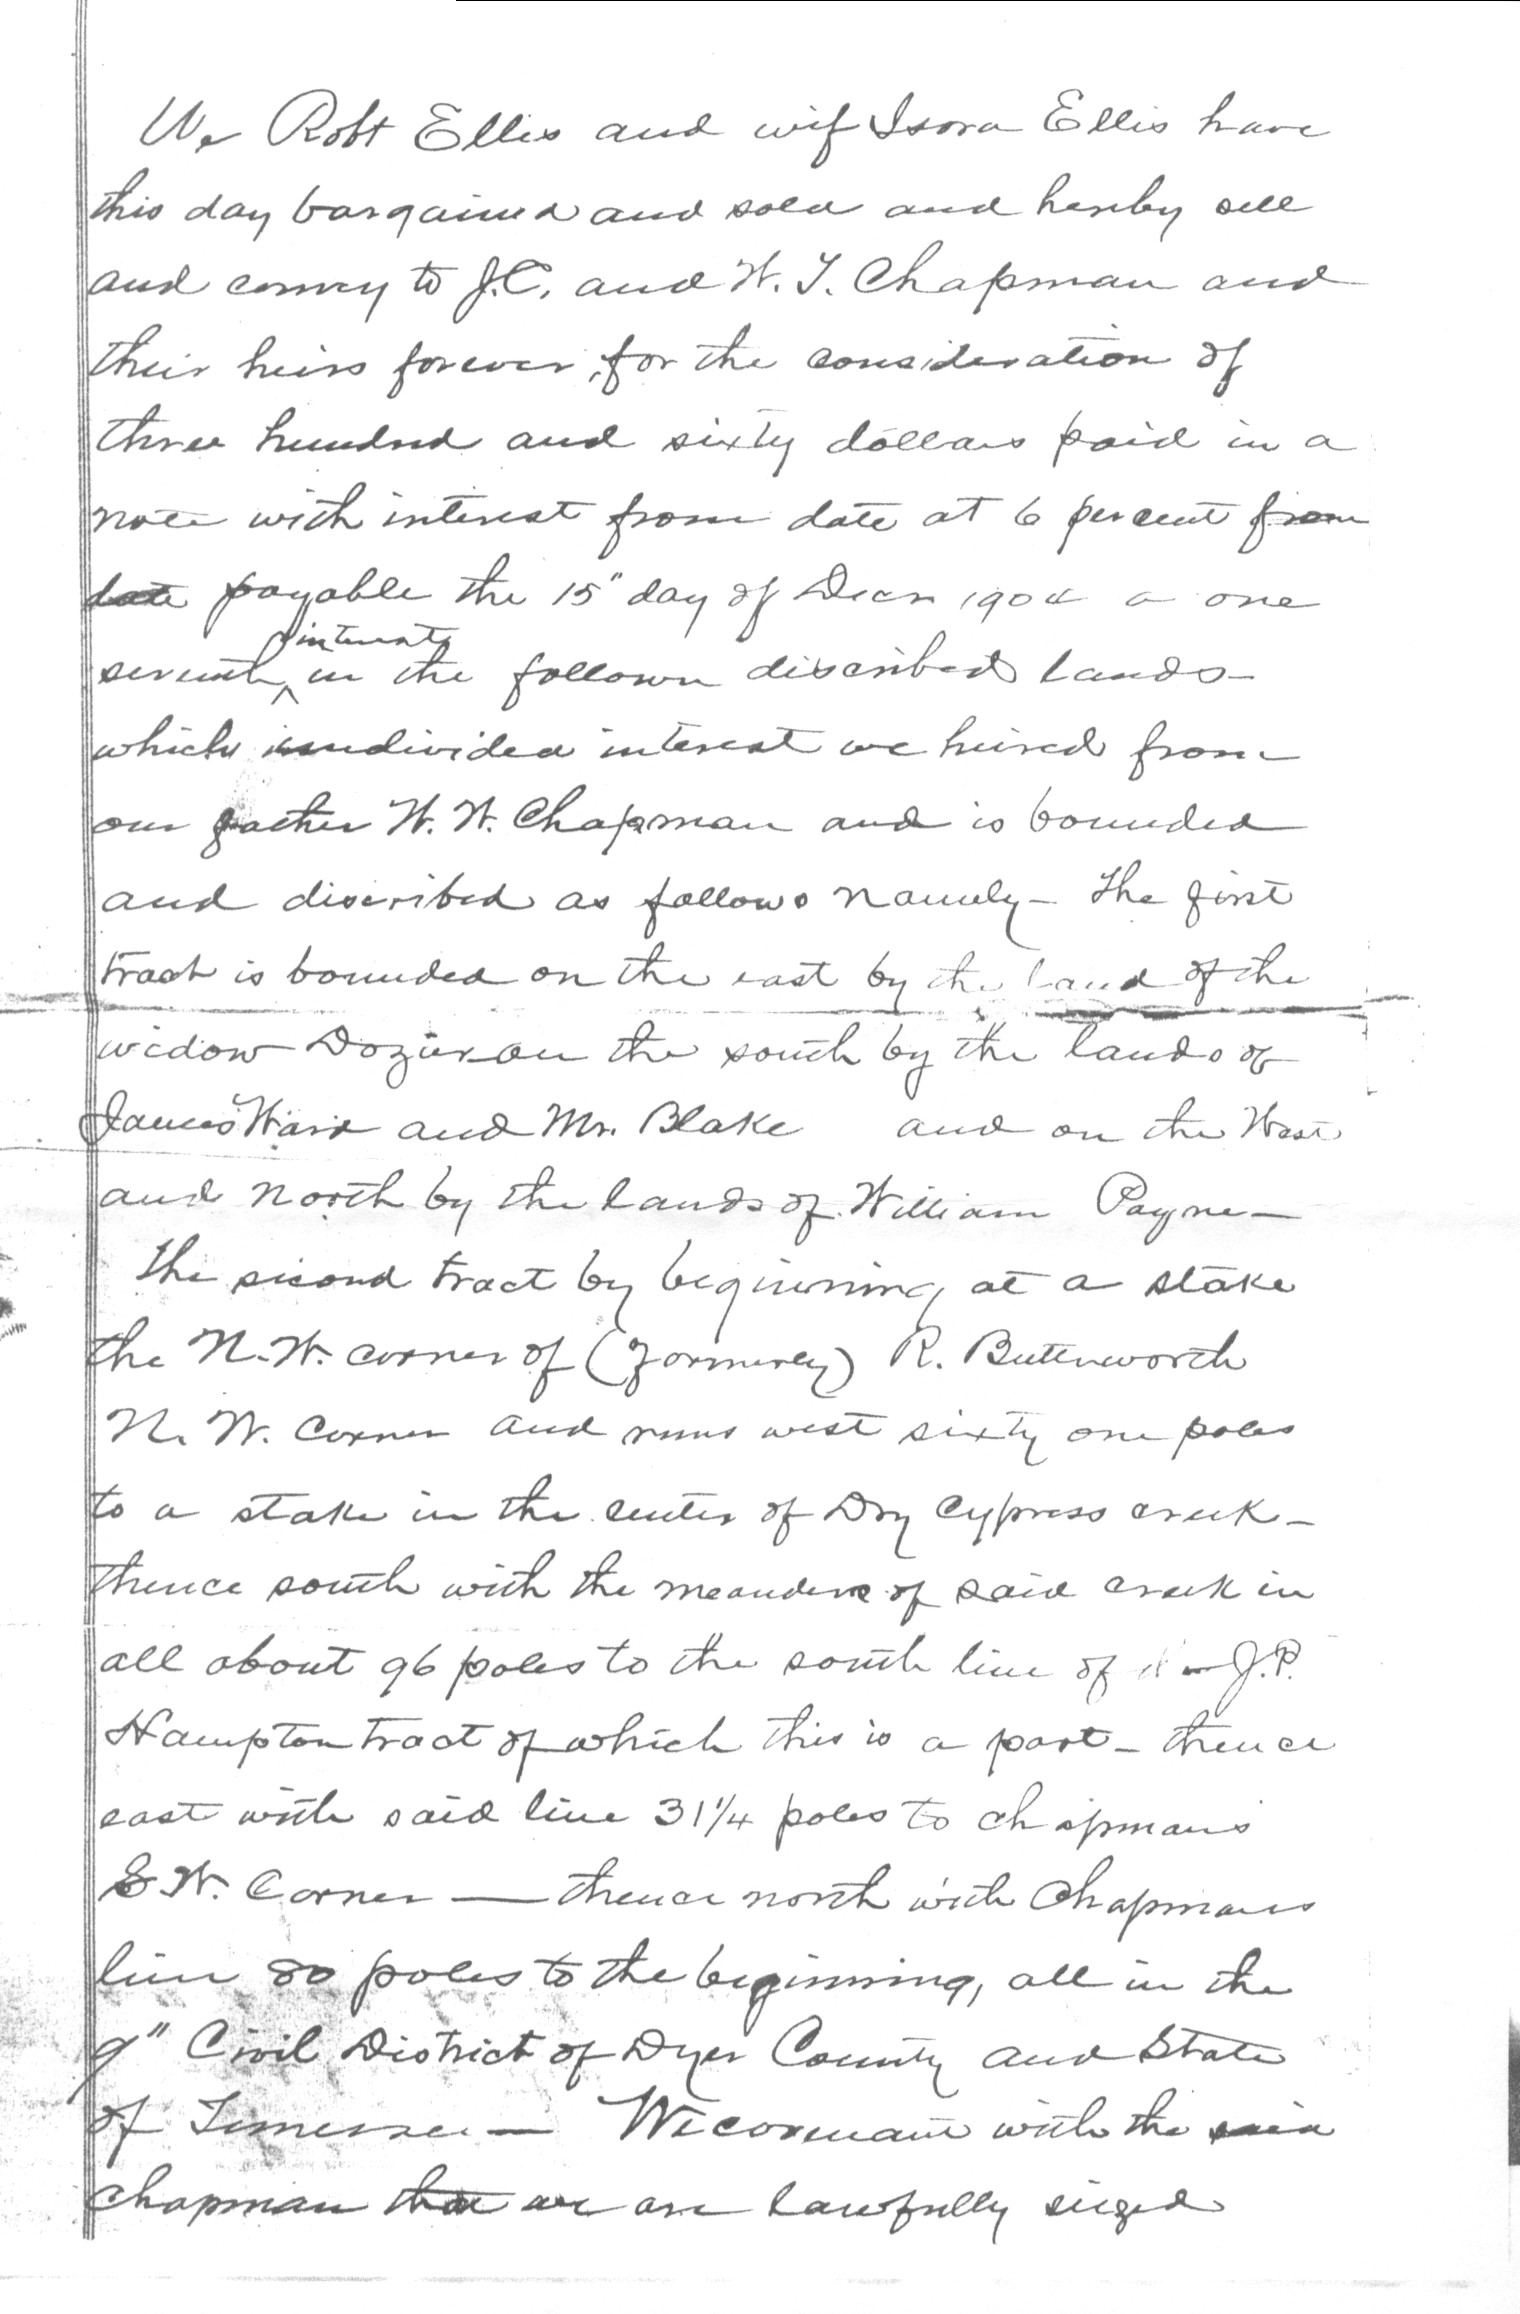 We Robt Ellis and wif Isora Ellis have
this day bargained and sold and hereby sell
and convey to J.C. and W. T. Chapman and
their heirs forever, for the consideration of
three hundred and sixty dollars paid in a
note with interest from date at 6 percent from
date payable the 15" day of Decr 1904 a one
interest
seventh in the followin discribed lands-
which undivided interest we heired from
our father W. W. Chapman and is bounded
and discribed as follows namely- The first
tract is bounded on the east by the land of the
widow Dozier on the south by the lands of
James Ward and Mr. Blake and on the West
and north by the lands of William Payne-
The second tract by beginning at a stake
the N.W. corner of (formerly) R. Butterworth
N. W. Corner and runs west sixty one poles
to a stake in the center of Dry Cypress creek-
thence south with the meanders of said creek in
all about 96 poles to the south line of J.P.
Hampton tract of which this is a part- thence
east with said line 31 1/4 poles to Chapman's
S W. Corner — thence north with Chapmans
line 80 poles to the beginning, all in the
9" Civil District of Dyer County and State
of Tennessee — We covenant with the said
Chapman that we are lawfully siezed